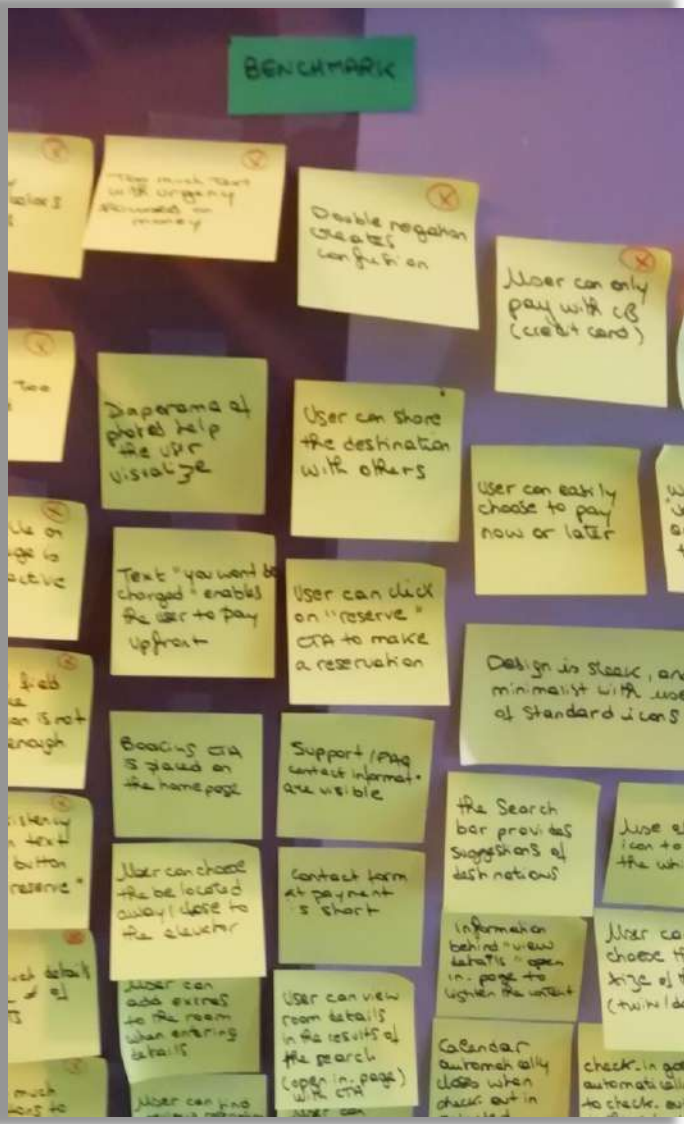 BENCHMARK
X
X
X
X
Too much text
with urgency
money
Double negation
creates
confusion
User can only
pay with CB
(credit card)
X
Too
Diaporama of
photos help
the user
visualize
User can share
the destination
with others
User can easily
choose to pay
now or later
X
Text "you wont be
charged" enables
the user to pay
upfront
User can click
on "reserve"
CTA to make
a reservation
Design is sleek, and
minimalist with use
of standard icons
X
field
is not
enough
Booking CTA
is placed on
the homepage
Support / FAQ
contact informat°
are visible
the Search
bar provides
suggestions of
destinations
icon to
X
text
button
reserve"
User can choose
the be located
away/close to
the elevator
Contact form
at payment
is short
Information
behind "view
details" open
in-page to
lighten the content
User can
choose
(twin/
details
of
User can
add extras
to the room
when entering
details
User can view
room details
in the results of
the search
(open in-page)
with CTA
Calendar
automatically
closes when
check out is
check-in
to check-out
much
User can find
User can